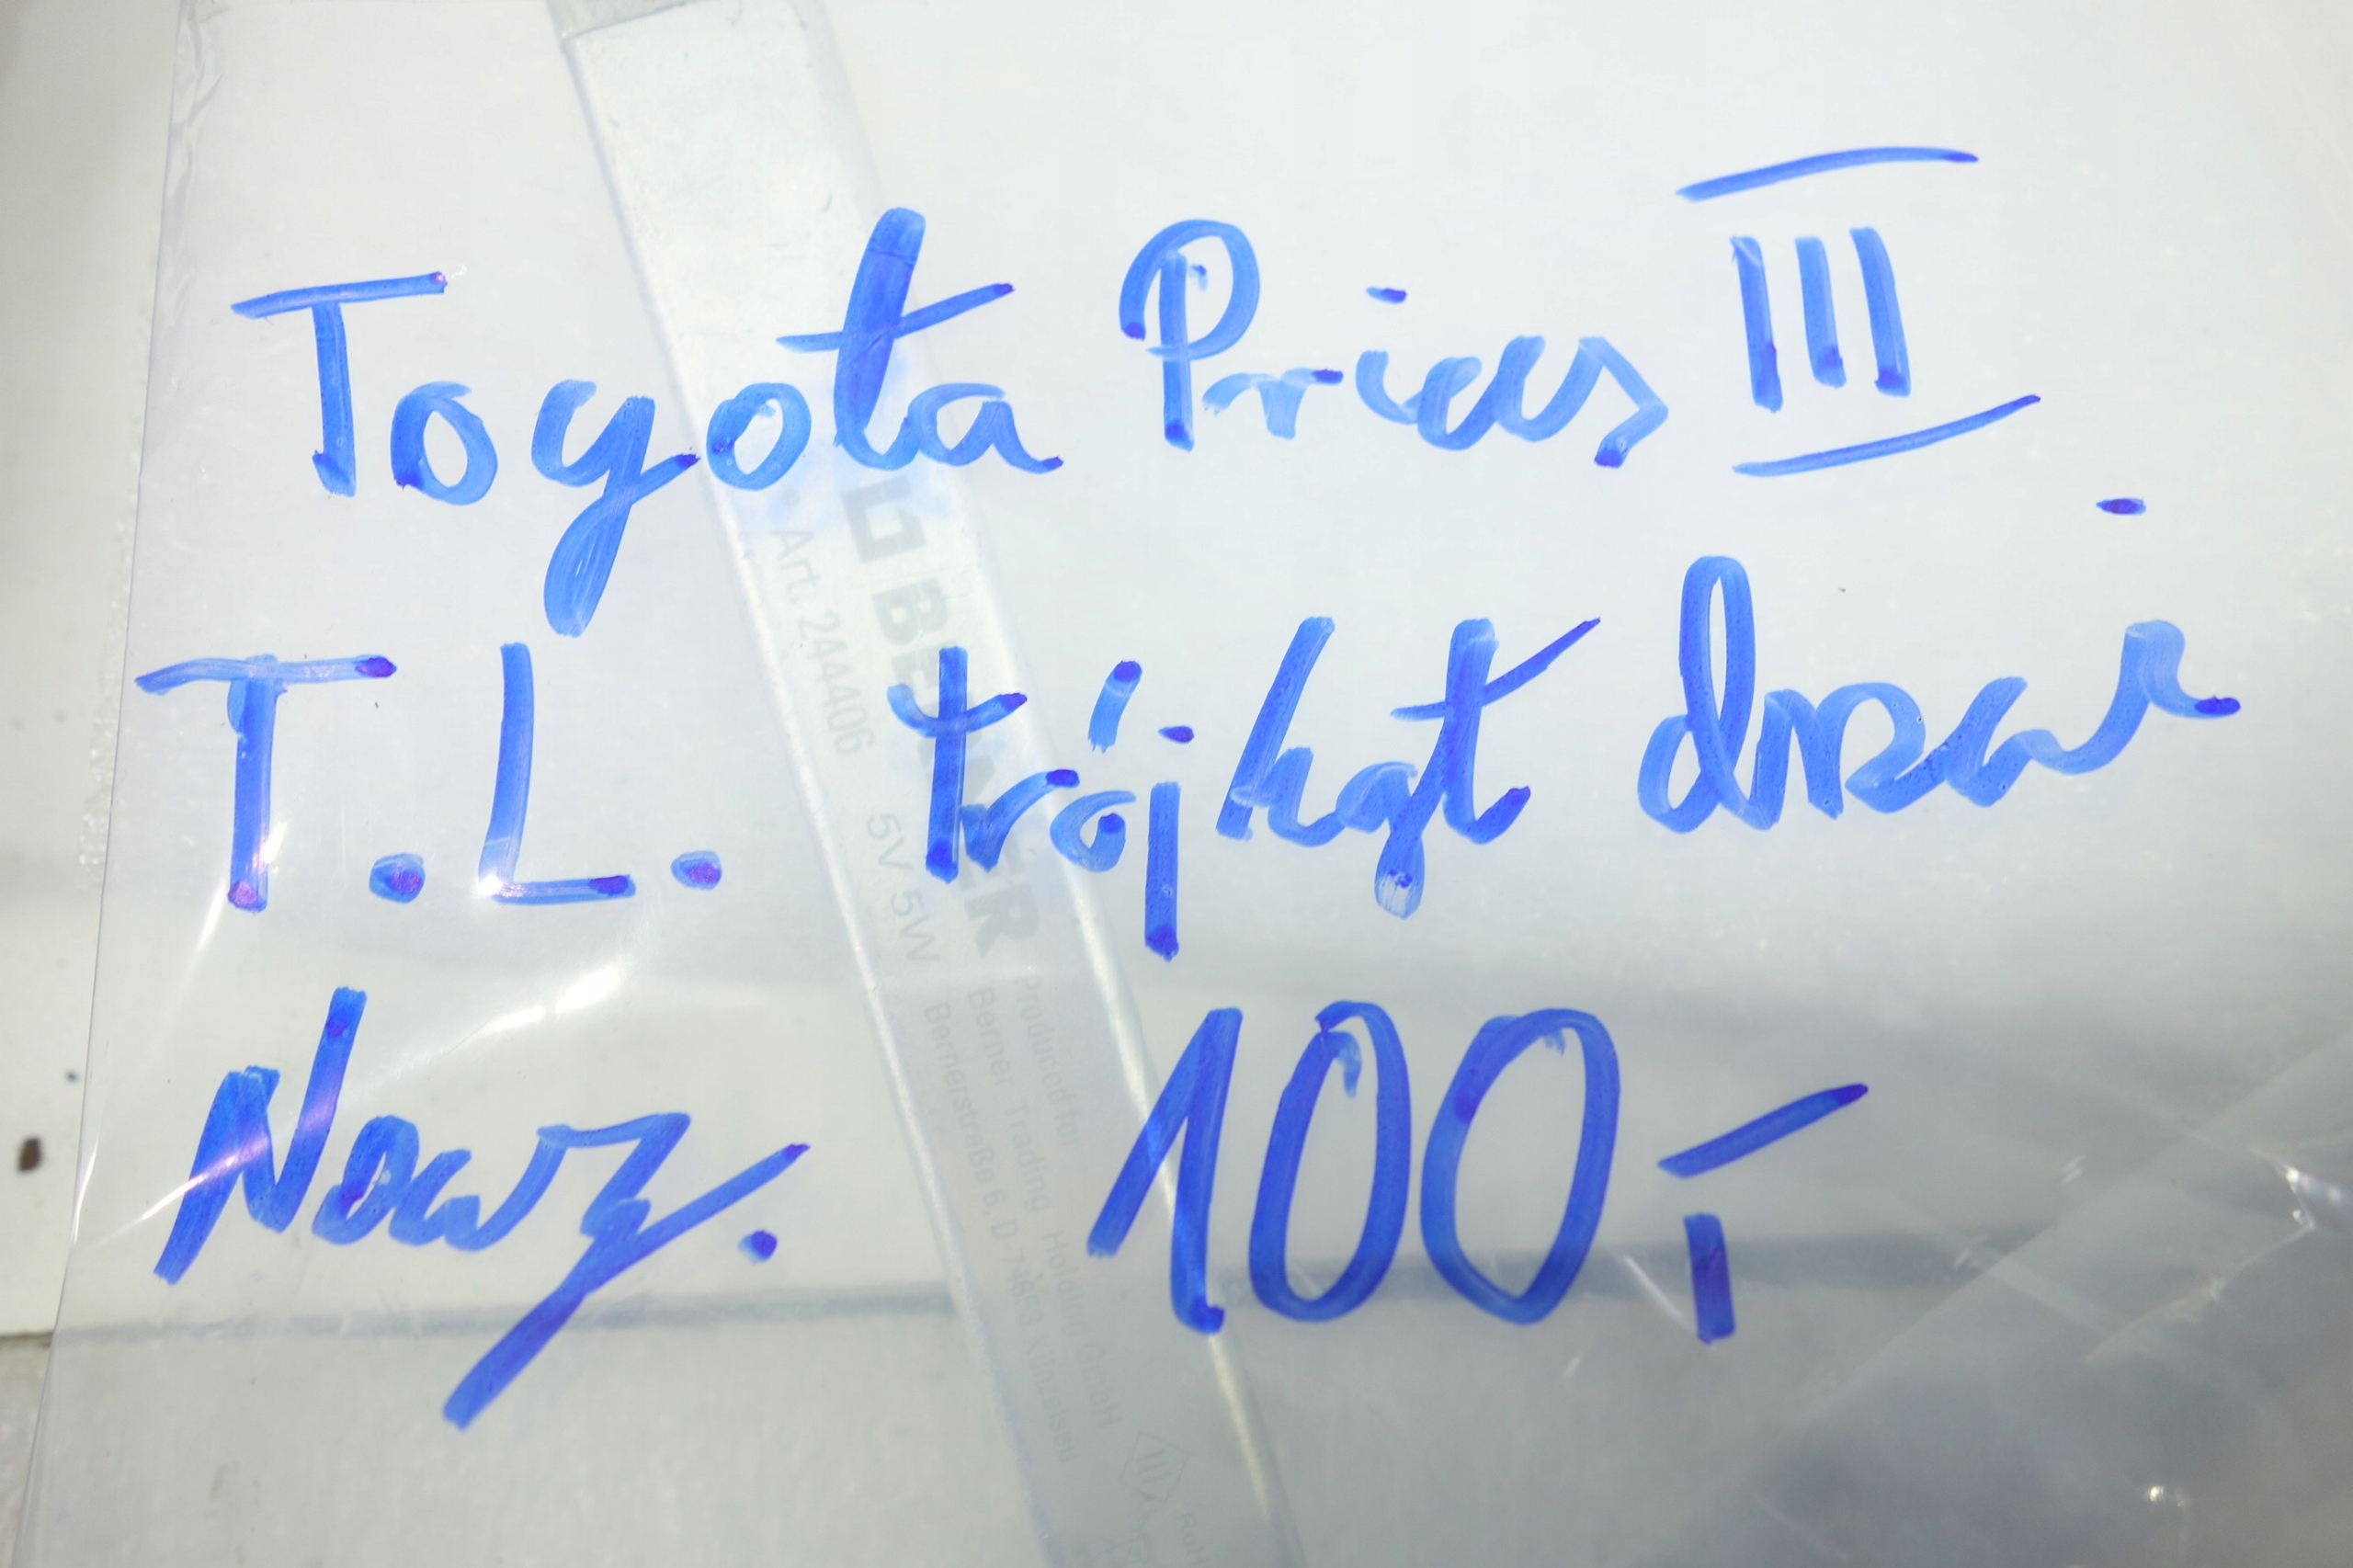 Toyota Prius III
T.L. trójkąt drzwi
Nowy. 100,-
BERNER
Art. 244406 5V 5W
Produced for
Berner Trading Holding GmbH
Bernerstraße 6, D-74653 Künzelsau
RoHS